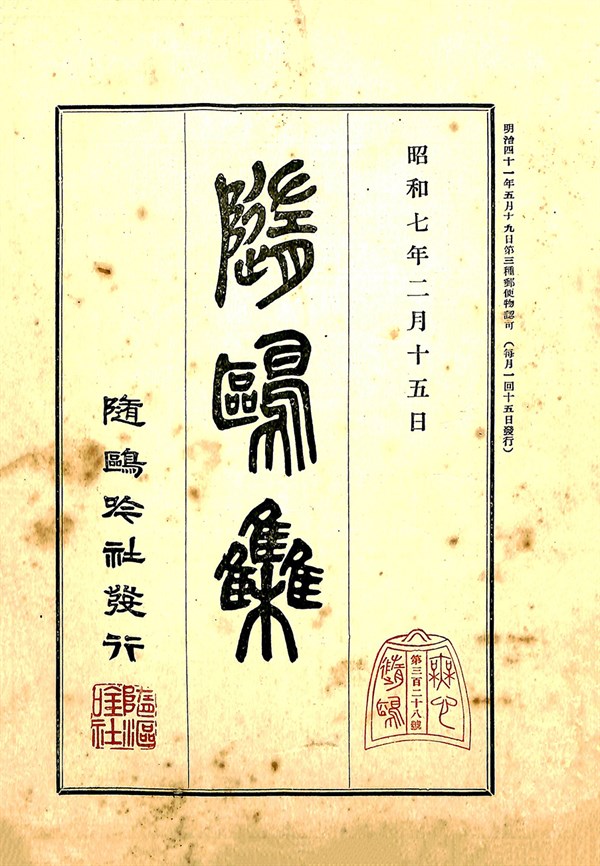 明治四十一年五月十九日第三種郵便物認可（每月一回十五日發行）
昭和七年二月十五日
無心
第三百二十八號
隨鷗
隨鷗集
隨鷗吟社發行
隨漚唫社